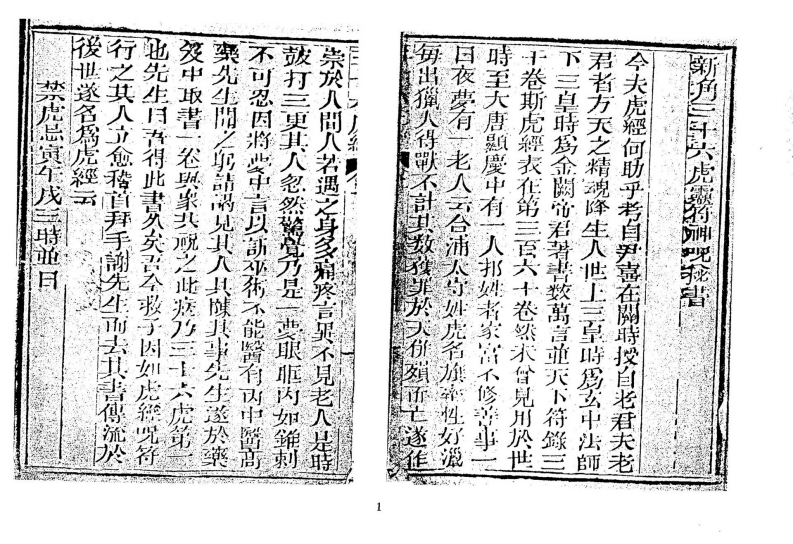 新角三十六虎靈符神咒秘書
今夫虎經何助乎考自尹喜在關時授自老君夫老
君者方天之精魂降生人世上三皇時為玄中法師
下三皇時為金闕帝君著書數萬言並天下符錄三
十卷斯虎經表在第三百六十卷然未曾見用於世
時至大唐顯慶中有一人邦姓者家富不修善事一
日夜夢有一老人云台浦太守姓虎名旗牽性好獵
每出獵人得獸不計其數獲罪於天併殞而亡遂作
三十六虎經
祟於人間人若遇之身多痛疼言畢不見老人是時
鼓打三更其人忽然驚覺乃是一夢眼眶內如錐刺
不可忍因將夢中言以訴巫術不能醫有內中醫高
藥先生聞之躬請謁見其人具陳其事先生遂於藥
笈中取書一卷與眾共視之此病乃三十六虎第一
也先生曰吾得此書久矣吾今救子因如虎經咒符
行之其人立愈稽首拜手謝先生而去其書傳流於
後世遂名為虎經云
禁虎忌寅午戌三時並日
1